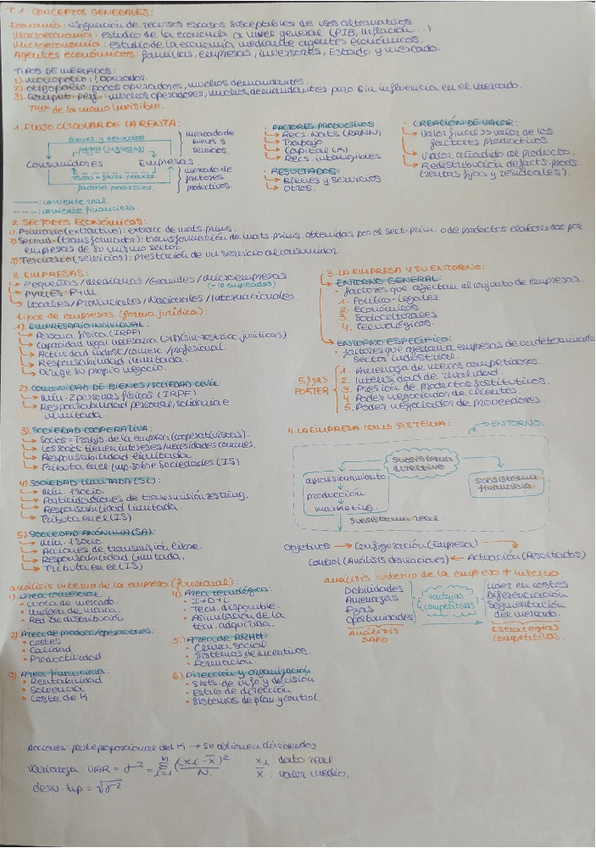 T.1 CONCEPTOS GENERALES:
Economía: asignación de recursos escasos susceptibles de usos alternativos
Macroeconomía: estudio de la economía a nivel general (PIB, inflación ...)
Microeconomía: estudio de la economía mediante agentes económicos.
Agentes económicos: familias, empresas, inversores, Estado y mercado.
TIPOS DE MERCADOS:
1) Monopolio: 1 operador.
2) Oligopolio: pocos operadores, muchos demandantes.
3) Compet. perf.: muchos operadores, muchos demandantes pero sin influencia en el mercado.
Tª de la mano invisible.
1. FLUJO CIRCULAR DE LA RENTA:
bienes y servicios
pagos (ingresos)
Consumidores
Empresas
rentas = facts. product.
factores productivos.
mercado de bienes y servicios.
mercado de factores productivos.
corriente real.
corriente financiera.
FACTORES PRODUCTIVOS
Recs. Nats. (RRNN)
Trabajo
Capital (K)
Recs. intangibles
RESULTADOS:
Bienes y servicios
Otros.
CREACIÓN DE VALOR:
Valor final >> valor de los factores productivos
Valor añadido al producto.
Redistribución de facts. prods. (rentas fijas y residuales).
2. SECTORES ECONÓMICOS:
1) Primario (extractivo): extracc. de mats. prims.
2) Secund. (transformador): transformación de mats. prims. obtenidas por el sect. prim. o de productos elaborados por empresas de su mismo sector.
3) Terciario (servicios): prestación de un servicio al consumidor.
3. EMPRESAS:
Pequeñas / Medianas / Grandes / Microempresas
(-10 empleados)
PYMES = P+M
Locales / Provinciales / Nacionales / Internacionales
tipos de empresas (forma jurídica):
1) EMPRESARIO INDIVIDUAL:
Persona física (IRPF)
Capacidad legal necesaria
Actividad indust/comerc/profesional.
Responsabilidad ilimitada.
Dirige su propio negocio.
2) COMUNIDAD DE BIENES / SOCIEDAD CIVIL
Mín. 2 personas físicas (IRPF)
Responsabilidad personal, solidaria e ilimitada.
3) SOCIEDAD COOPERATIVA:
Socios = Trabjs. de la empresa (cooperativistas).
Los socios tienen intereses/necesidades comunes.
Responsabilidad limitada
Tributa en el Imp. sobre Sociedades (IS)
4) SOCIEDAD LIMITADA (SL):
Mín. 1 socio.
Participaciones de transmisión restring.
Responsabilidad limitada.
Tributa en el (IS)
5) SOCIEDAD ANÓNIMA (SA):
Mín. 1 socio.
Acciones de transmisión libre.
Responsabilidad limitada.
Tributa en el (IS)
3. LA EMPRESA Y SU ENTORNO:
ENTORNO GENERAL:
factores que afectan al conjunto de empresas.
1. Político-legales.
2. Económicos
3. Socioculturales
4. Tecnológicos.
ENTORNO ESPECÍFICO:
factores que afectan a empresas de un determinado sector industrial.
5 fzas PORTER
1. Amenaza de nuevos competidores.
2. Intensidad de rivalidad
3. Presión de productos sustitutivos.
4. Poder negociador de clientes
5. Poder negociador de proveedores
4. LA EMPRESA COMO SISTEMA:
ENTORNO.
subsistema directivo
aprovisionamiento
producción
marketing
subsistema financiero
subsistema real
Objetivos → Configuración (Empresa)
Control (Análisis desviaciones) ← Actuación (Resultados)
análisis interno de la empresa (funcional):
1) Área comercial
• Cuota de mercado
• Imagen de marca.
• Red de distribución
2) Área de producc/operaciones.
• Costes
• Calidad
• Productividad.
3) Área financiera
• Rentabilidad
• Solvencia
• Coste de K.
4) Área tecnológica:
• I+D+i.
• Tecn. disponible.
• Asimilación de la tecn. adquirida.
5) Área de RRHH:
• Clima social
• Sistemas de incentivos.
• Formación
6) Dirección y organización
• Sists. de info y decisión
• Estilo de dirección
• Sistemas de plan y control.
análisis externo de la empresa + interno:
Debilidades
Amenazas
Fzas
Oportunidades
Análisis DAFO
ventajas competitivas
Líder en costes
Diferenciación
Segmentación del mercado.
Estrategias competitivas.
Acciones: parte proporcional del K → se obtienen dividendos
varianza: VAR = σ² = Σ (xi - x̄)² / N
xi: dato real
x̄: valor medio.
desv. tip = √σ²